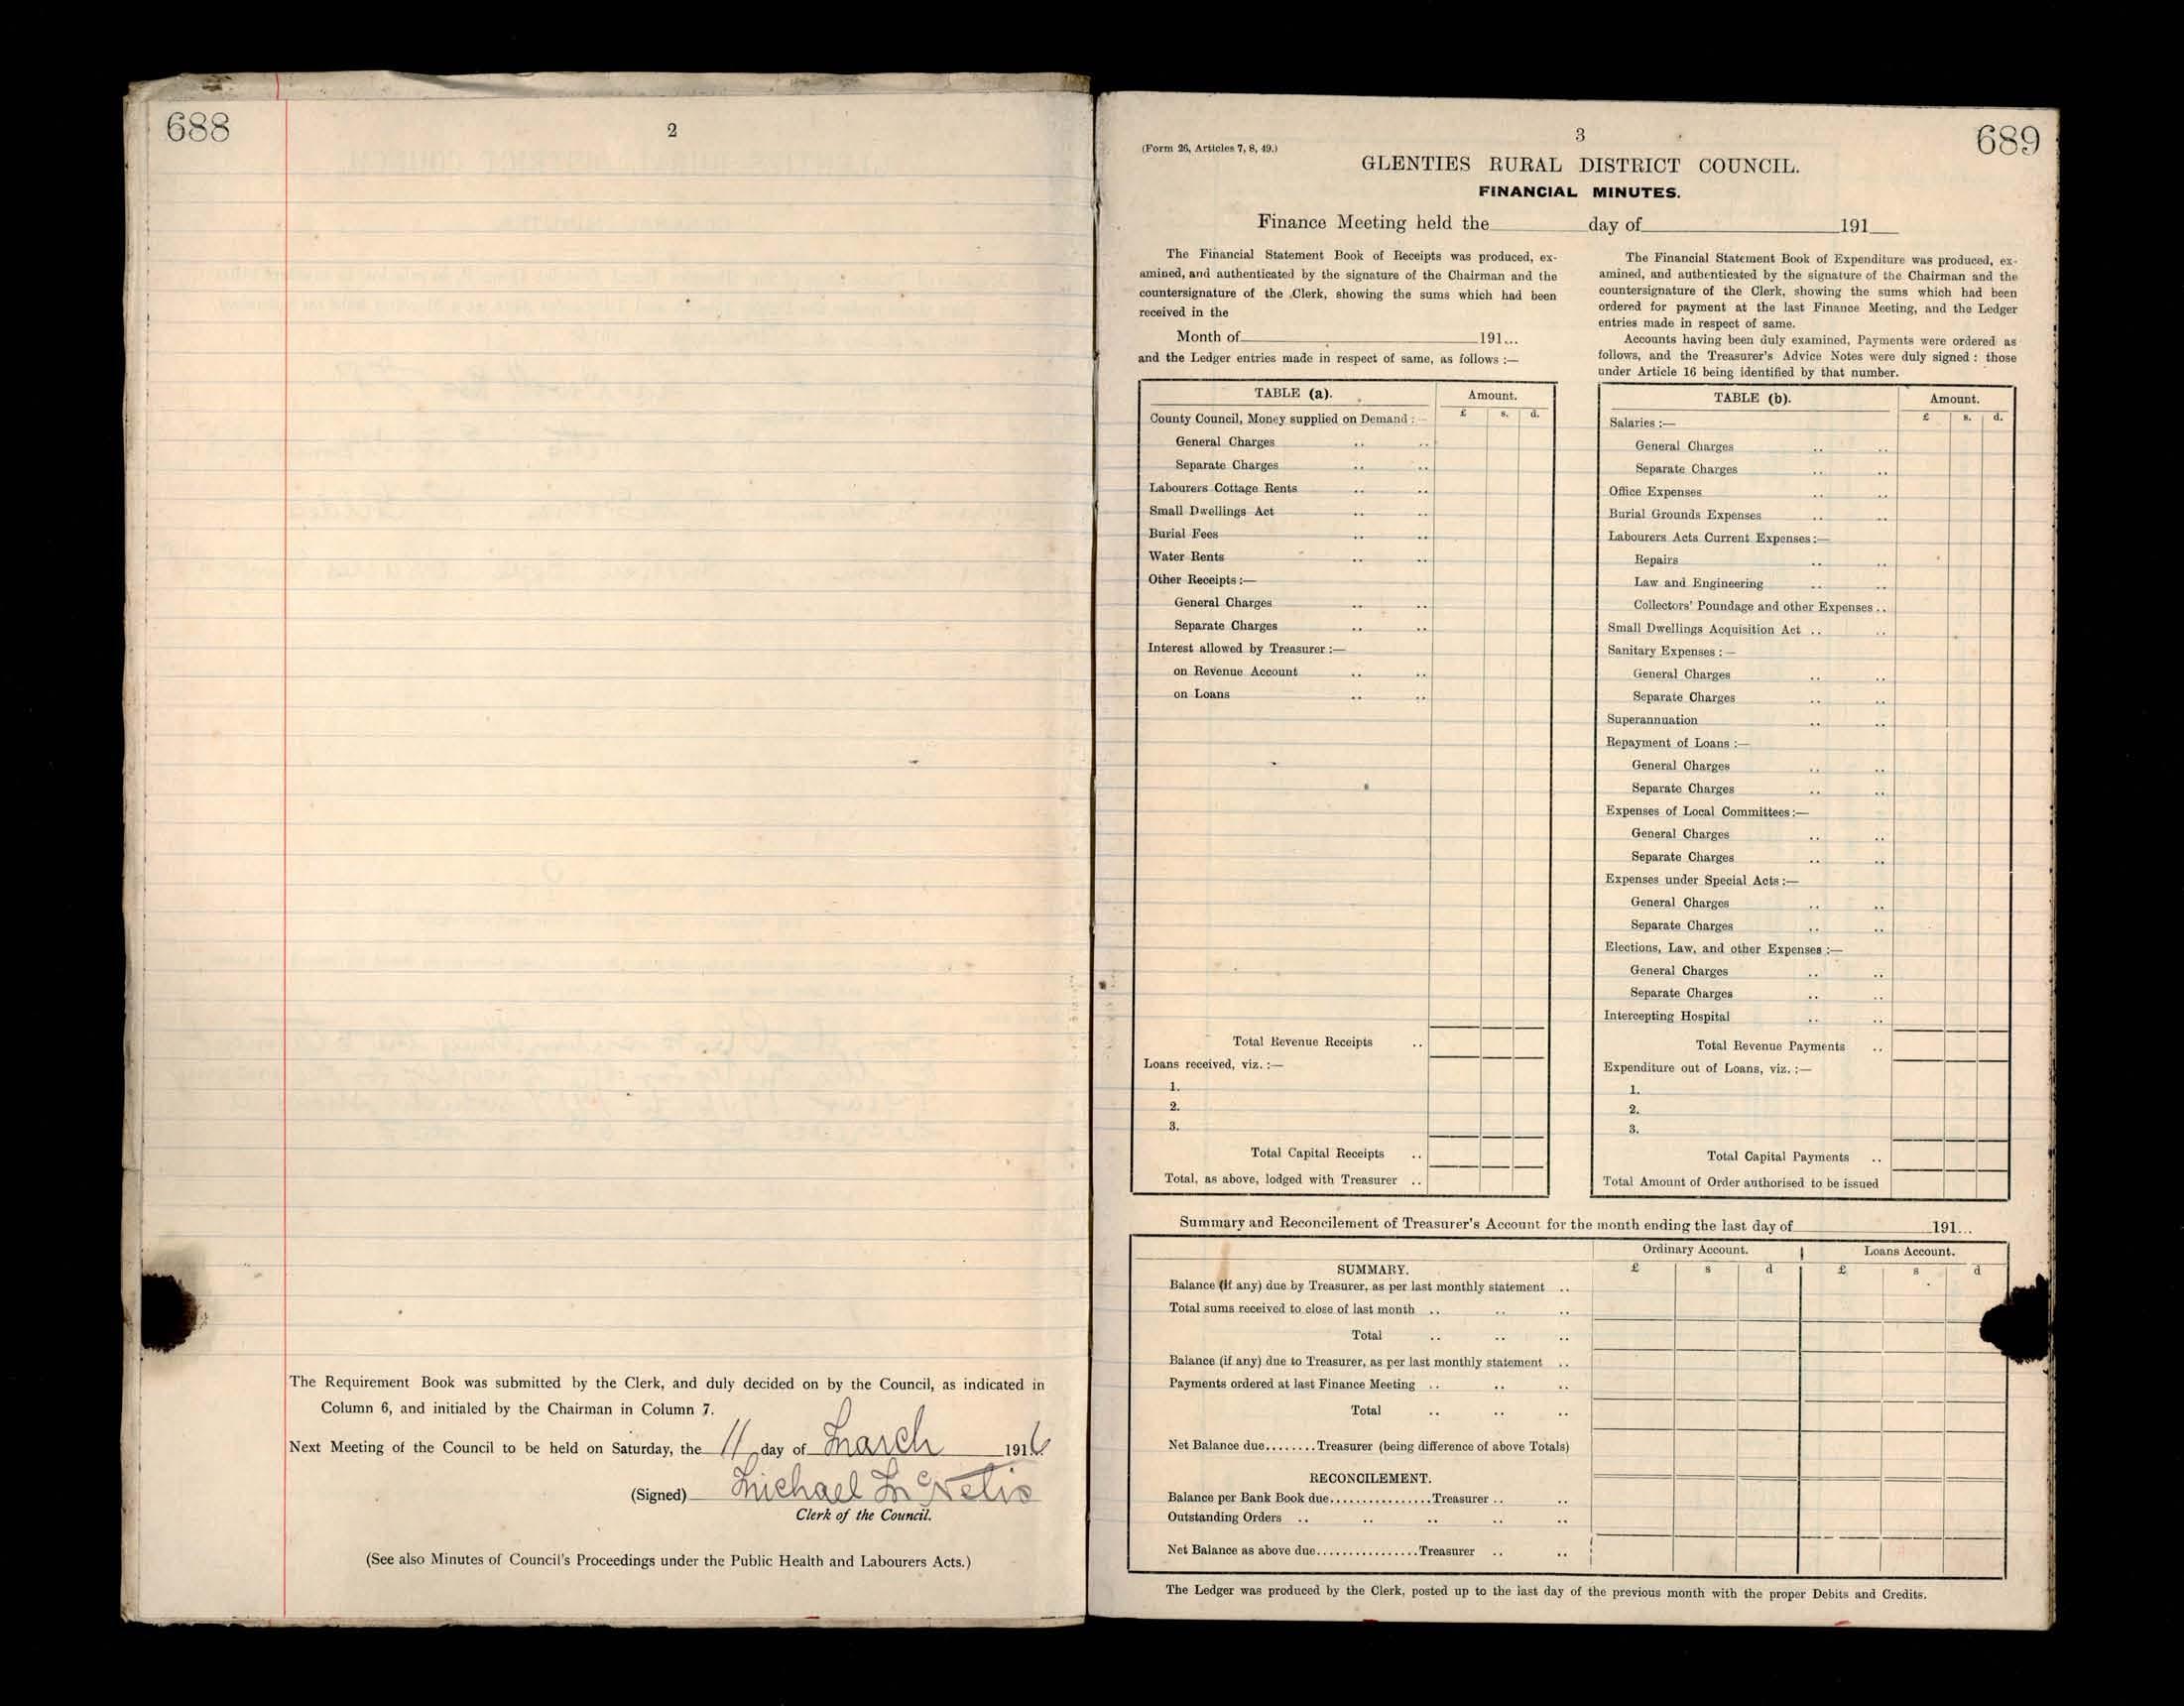 688
2
The Requirement Book was submitted by the Clerk, and duly decided on by the Council, as indicated in
Column 6, and initialed by the Chairman in Column 7.
Next Meeting of the Council to be held on Saturday, the 11 day of March 1916
(Signed) Michael McNelis
Clerk of the Council.
(See also Minutes of Council's Proceedings under the Public Health and Labourers Acts.)
3
689
(Form 26, Articles 7, 8, 49.)
GLENTIES RURAL DISTRICT COUNCIL.
FINANCIAL MINUTES.
Finance Meeting held the day of 191
The Financial Statement Book of Receipts was produced, ex-
amined, and authenticated by the signature of the Chairman and the
countersignature of the Clerk, showing the sums which had been
received in the
Month of 191...
and the Ledger entries made in respect of same, as follows :—
TABLE (a). Amount.
£ s. d.
County Council, Money supplied on Demand :—
General Charges .. ..
Separate Charges .. ..
Labourers Cottage Rents .. ..
Small Dwellings Act .. ..
Burial Fees .. ..
Water Rents .. ..
Other Receipts :—
General Charges .. ..
Separate Charges .. ..
Interest allowed by Treasurer :—
on Revenue Account .. ..
on Loans .. ..
Total Revenue Receipts ..
Loans received, viz. :—
1.
2.
3.
Total Capital Receipts ..
Total, as above, lodged with Treasurer ..
The Financial Statement Book of Expenditure was produced, ex-
amined, and authenticated by the signature of the Chairman and the
countersignature of the Clerk, showing the sums which had been
ordered for payment at the last Finance Meeting, and the Ledger
entries made in respect of same.
Accounts having been duly examined, Payments were ordered as
follows, and the Treasurer's Advice Notes were duly signed : those
under Article 16 being identified by that number.
TABLE (b). Amount.
£ s. d.
Salaries :—
General Charges .. ..
Separate Charges .. ..
Office Expenses .. ..
Burial Grounds Expenses .. ..
Labourers Acts Current Expenses :—
Repairs .. ..
Law and Engineering .. ..
Collectors' Poundage and other Expenses ..
Small Dwellings Acquisition Act .. ..
Sanitary Expenses :—
General Charges .. ..
Separate Charges .. ..
Superannuation .. ..
Repayment of Loans :—
General Charges .. ..
Separate Charges .. ..
Expenses of Local Committees :—
General Charges .. ..
Separate Charges .. ..
Expenses under Special Acts :—
General Charges .. ..
Separate Charges .. ..
Elections, Law, and other Expenses :—
General Charges .. ..
Separate Charges .. ..
Intercepting Hospital .. ..
Total Revenue Payments ..
Expenditure out of Loans, viz. :—
1.
2.
3.
Total Capital Payments ..
Total Amount of Order authorised to be issued
Summary and Reconcilement of Treasurer's Account for the month ending the last day of 191...
Ordinary Account. Loans Account.
SUMMARY. £ s d £ s d
Balance (if any) due by Treasurer, as per last monthly statement ..
Total sums received to close of last month .. .. ..
Total .. .. ..
Balance (if any) due to Treasurer, as per last monthly statement ..
Payments ordered at last Finance Meeting .. .. ..
Total .. .. ..
Net Balance due........Treasurer (being difference of above Totals)
RECONCILEMENT.
Balance per Bank Book due................Treasurer .. ..
Outstanding Orders .. .. .. .. ..
Net Balance as above due................Treasurer .. ..
The Ledger was produced by the Clerk, posted up to the last day of the previous month with the proper Debits and Credits.